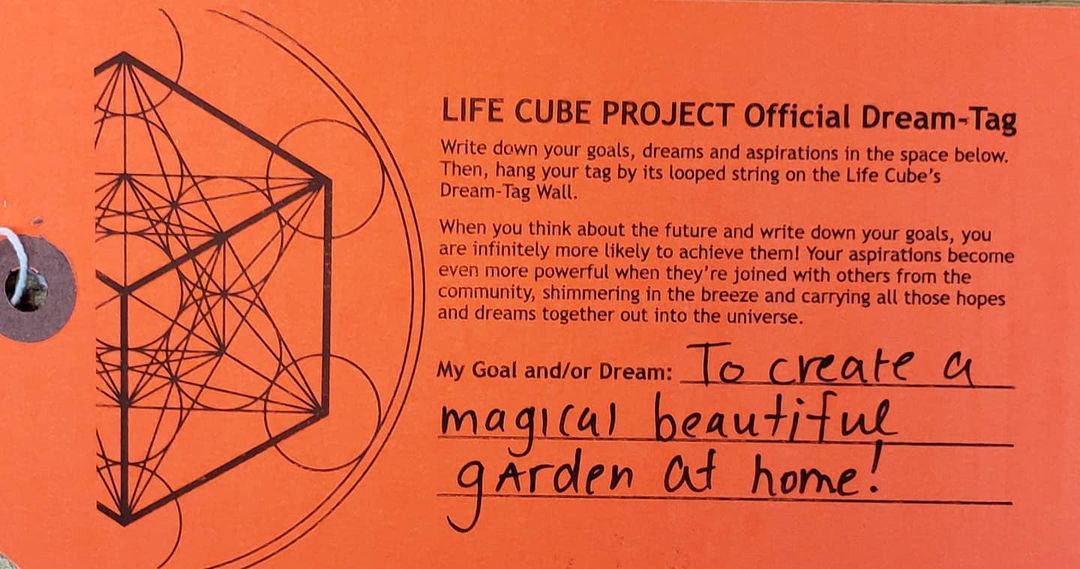 LIFE CUBE PROJECT Official Dream-Tag
Write down your goals, dreams and aspirations in the space below.
Then, hang your tag by its looped string on the Life Cube's
Dream-Tag Wall.
When you think about the future and write down your goals, you
are infinitely more likely to achieve them! Your aspirations become
even more powerful when they're joined with others from the
community, shimmering in the breeze and carrying all those hopes
and dreams together out into the universe.
My Goal and/or Dream: To create a
magical beautiful
gArden at home!